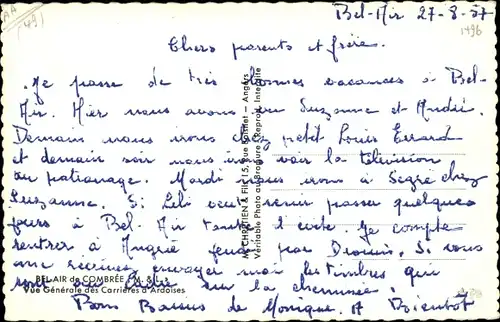 AA
(49)
Bel-Air 27-8-57
1496
Chers parents et frère.
Je passe de très bonnes vacances à Bel-
Air. Hier nous avons vu Suzanne et André.
Demain nous irons chez petit Louis Errard
et demain soir nous irons voir la télévision
au patronage. Mardi nous irons à Segré chez
Suzanne. Si Lili veut venir passer quelques
jours à Bel-Air l'invite. Je compte
rentrer à Angrie jeudi par Drouin. Si vous
me envoyer moi les timbres qui
sont sur la cheminée.
Bons Baisers de Monique. A Bientôt
BEL-AIR de COMBRÉE (M.-&-L.)
Vue Générale des Carrières d'Ardoises
M. CHRÉTIEN & Fils, 15, Rue Bosnet - Angers
Véritable Photo au Bromure - Reprod. Interdite